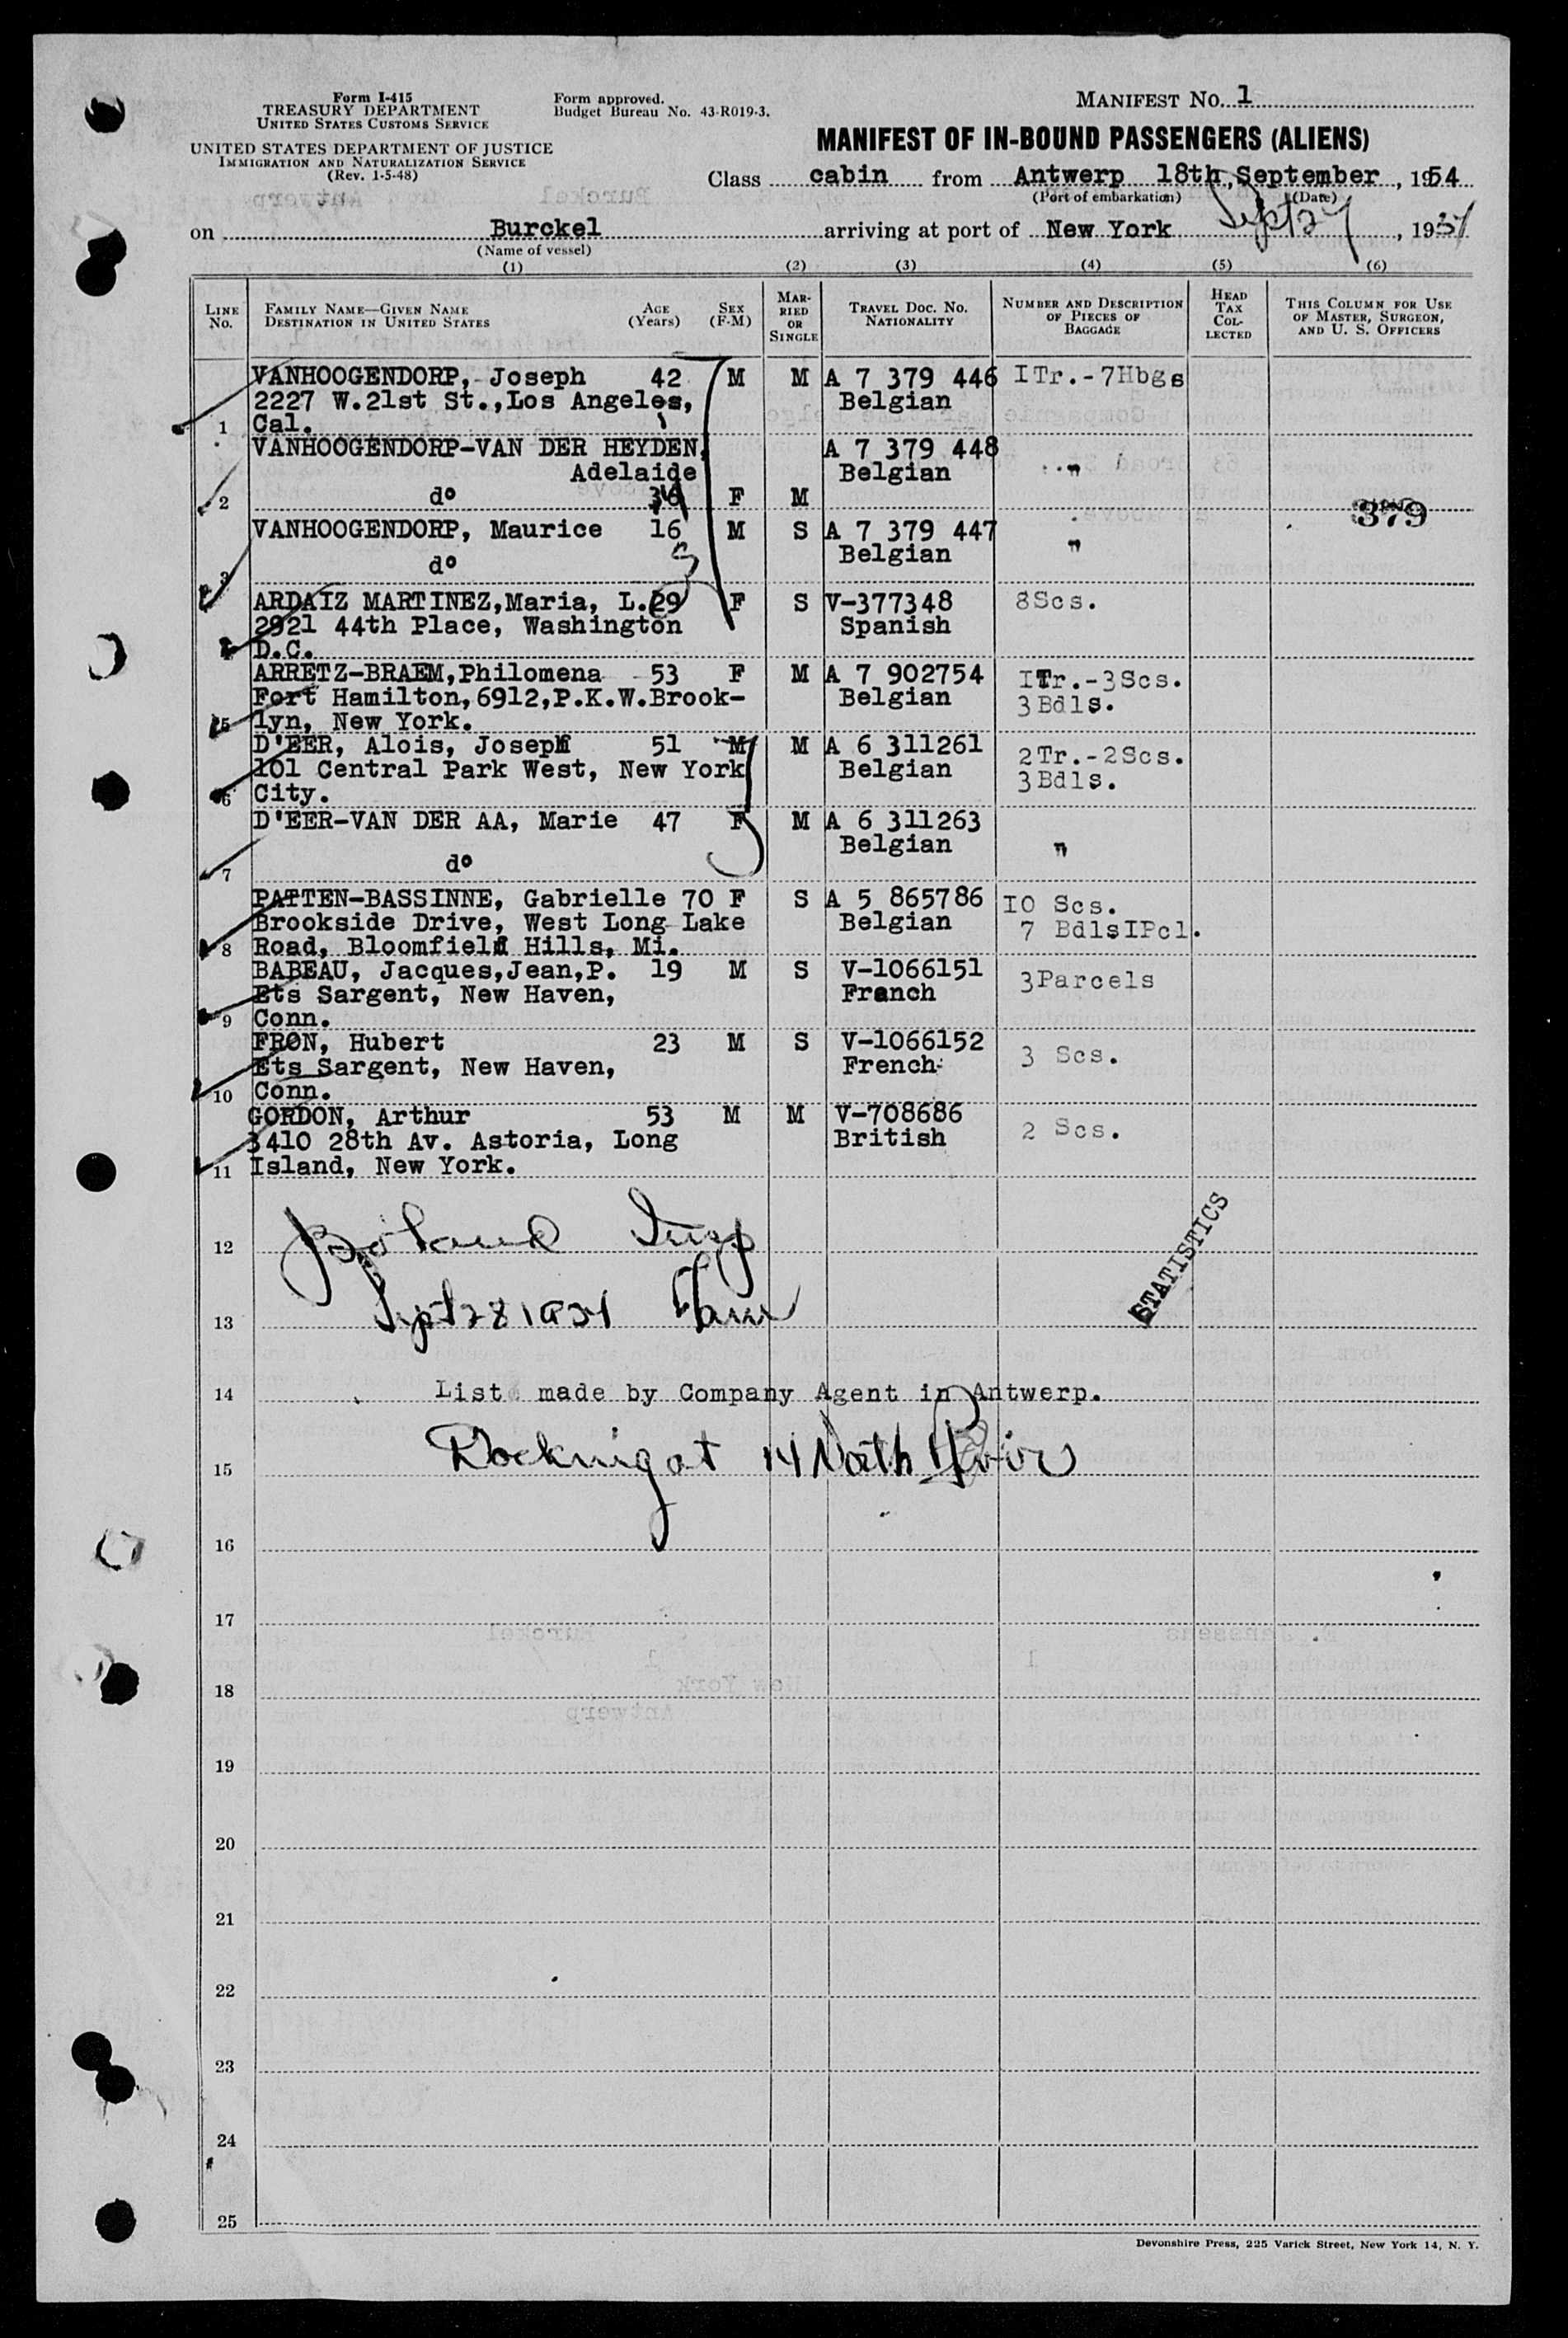 Form I-415
TREASURY DEPARTMENT
UNITED STATES CUSTOMS SERVICE
UNITED STATES DEPARTMENT OF JUSTICE
IMMIGRATION AND NATURALIZATION SERVICE
(Rev. 1-5-48)
Form approved.
Budget Bureau No. 43-R019-3.
MANIFEST NO. 1
MANIFEST OF IN-BOUND PASSENGERS (ALIENS)
Class cabin from Antwerp 18th, September, 1954
(Port of embarkation) (Date)
on Burckel arriving at port of New York Sept 27, 1954
(Name of vessel)
(1) (2) (3) (4) (5) (6)
LINE No. FAMILY NAME—GIVEN NAME DESTINATION IN UNITED STATES AGE (Years) SEX (F-M) MARRIED OR SINGLE TRAVEL DOC. NO. NATIONALITY NUMBER AND DESCRIPTION OF PIECES OF BAGGAGE HEAD TAX COLLECTED THIS COLUMN FOR USE OF MASTER, SURGEON, AND U. S. OFFICERS
VANHOOGENDORP, Joseph 42 M M A 7 379 446 ITr.-7Hbgs
2227 W.21st St.,Los Angeles, Belgian
1 Cal.
VANHOOGENDORP-VAN DER HEYDEN, A 7 379 448
Adelaide Belgian "
2 do F M
379
VANHOOGENDORP, Maurice 16 M S A 7 379 447
Belgian "
3 do
ARDAIZ MARTINEZ,Maria, L. 29 F S V-377348 8Scs.
2921 44th Place, Washington Spanish
D.C.
ARRETZ-BRAEM,Philomena 53 F M A 7 902754 ITr.-3Scs.
Fort Hamilton,6912,P.K.W.Brook- Belgian 3Bdls.
5 lyn, New York.
D'EER, Alois, Joseph 51 M M A 6 311261 2Tr.-2Scs.
101 Central Park West, New York Belgian 3Bdls.
6 City.
D'EER-VAN DER AA, Marie 47 F M A 6 311263
Belgian "
7 do
PATTEN-BASSINNE, Gabrielle 70 F S A 5 865786 IO Scs.
Brookside Drive, West Long Lake Belgian 7 BdlsIPcl.
8 Road, Bloomfield Hills, Mi.
BABEAU, Jacques,Jean,P. 19 M S V-1066151 3Parcels
Ets Sargent, New Haven, French
9 Conn.
FRON, Hubert 23 M S V-1066152 3 Scs.
Ets Sargent, New Haven, French
10 Conn.
GORDON, Arthur 53 M M V-708686 2 Scs.
3410 28th Av. Astoria, Long British
11 Island, New York.
12 Boland Insp
STATISTICS
13 Sept 28 1954
14 List made by Company Agent in Antwerp.
15 Docking at 14 North River
16
17
18
19
20
21
22
23
24
25
Devonshire Press, 225 Varick Street, New York 14, N. Y.